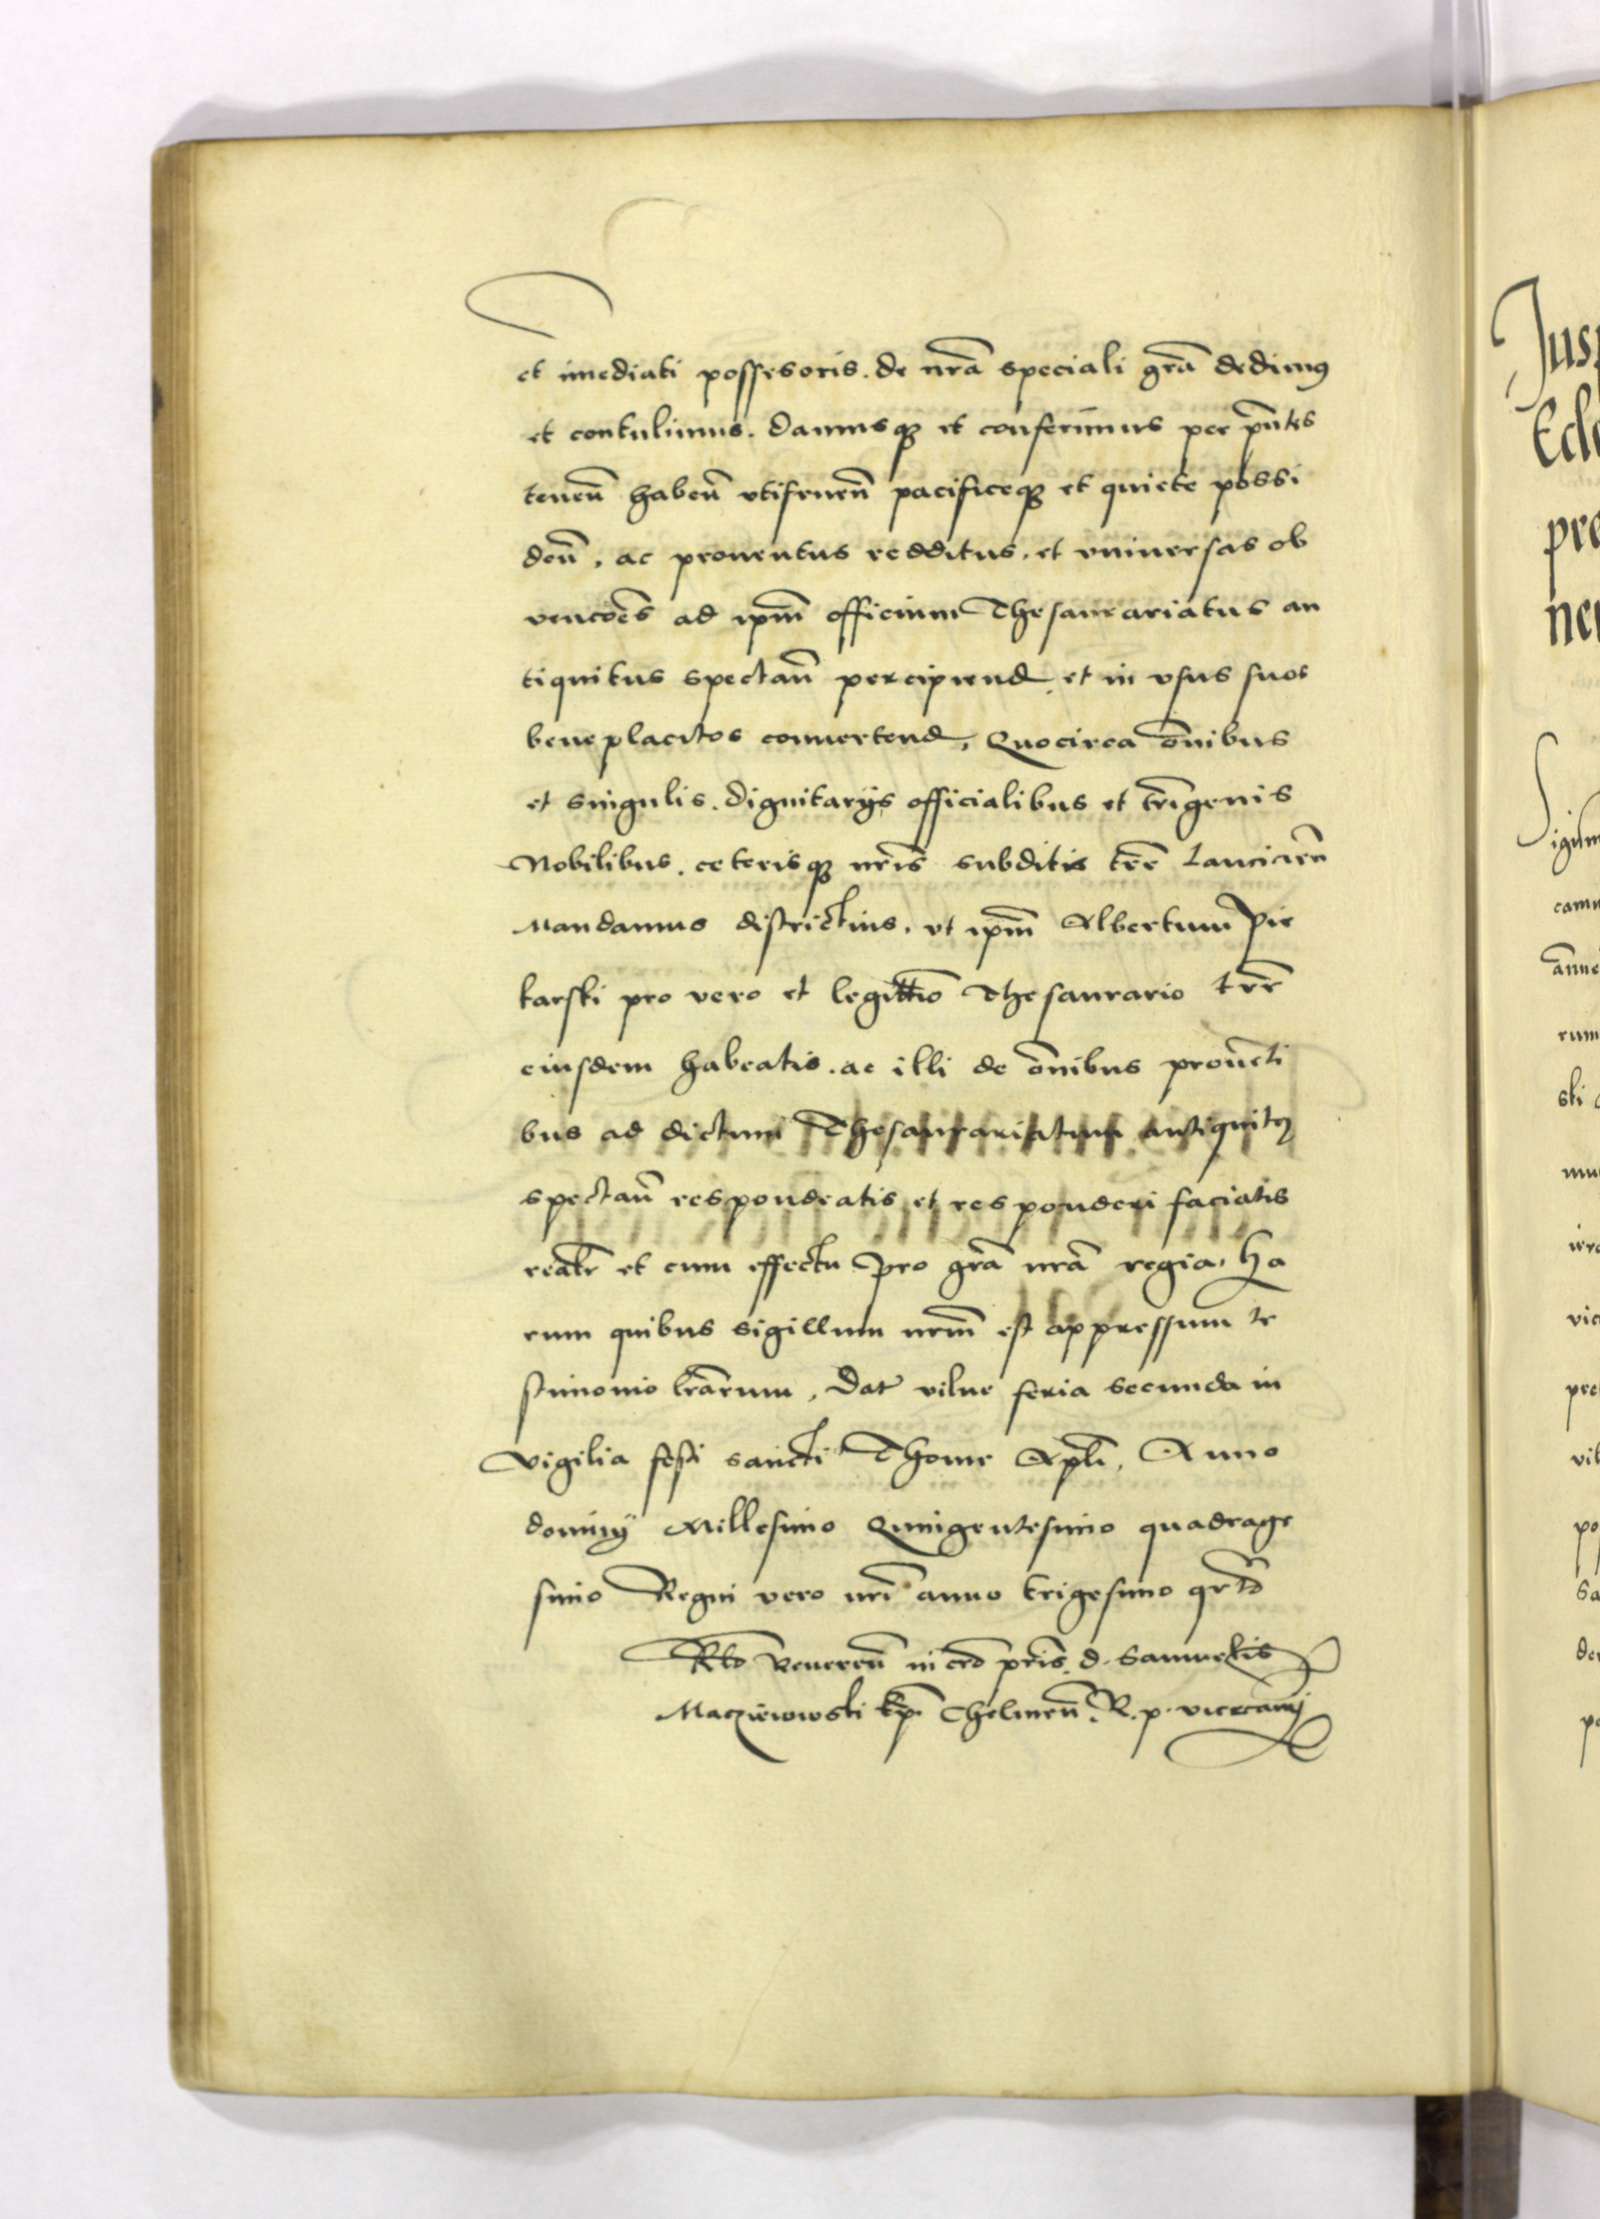 et imediati possesoris. de nr̃a speciali gr̃a dedimꝰ
et contulimus. Damusqꝫ et conferimus per pñtes
teneñ habeñ vtifrueñ pacificeqꝫ et quiete possi
deñ, ac prouentus redditus, et vniuersas ob
vencõẽs ad ipm̃ officium Thesaurariatus an
tiquitus spectañ percipiend et in vsus suos
beneplacitos conuertend, Quocirca õnibus
et singulis. dignitarijs officialibus et tr̃igenis
Nobilibus. ceterisqꝫ nr̃is subditis tr̃e Lancicieñ
Mandamus districtius, vt ipm̃ Albertum Pie
karski pro vero et legittĩo Thesaurario tr̃e
eiusdem habeatis. ac illi de õnibus prouẽti
bus ad dictum Thesaurariatum antiquitꝰ
spectañ respondeatis et responderi faciatis
realr̃ et cum effectu pro gr̃a nr̃a regia, Ha
rum quibus sigillum nrm̃ est appressum te
stimonio lr̃arum, Dat vilne feria secunda in
vigilia festi sancti Thome Apli͂, Anno
dominij Millesimo Quingentesimo quadrage
simo Regni vero nr̃i anno trigesimo qr̃to
Rtõ Reuereñ in crõ pr̃is d. Samuelis
Macziewowski Ep̃ Chelmeñ. R. p. vicecanrij
Jus
Ecl
pre
ne